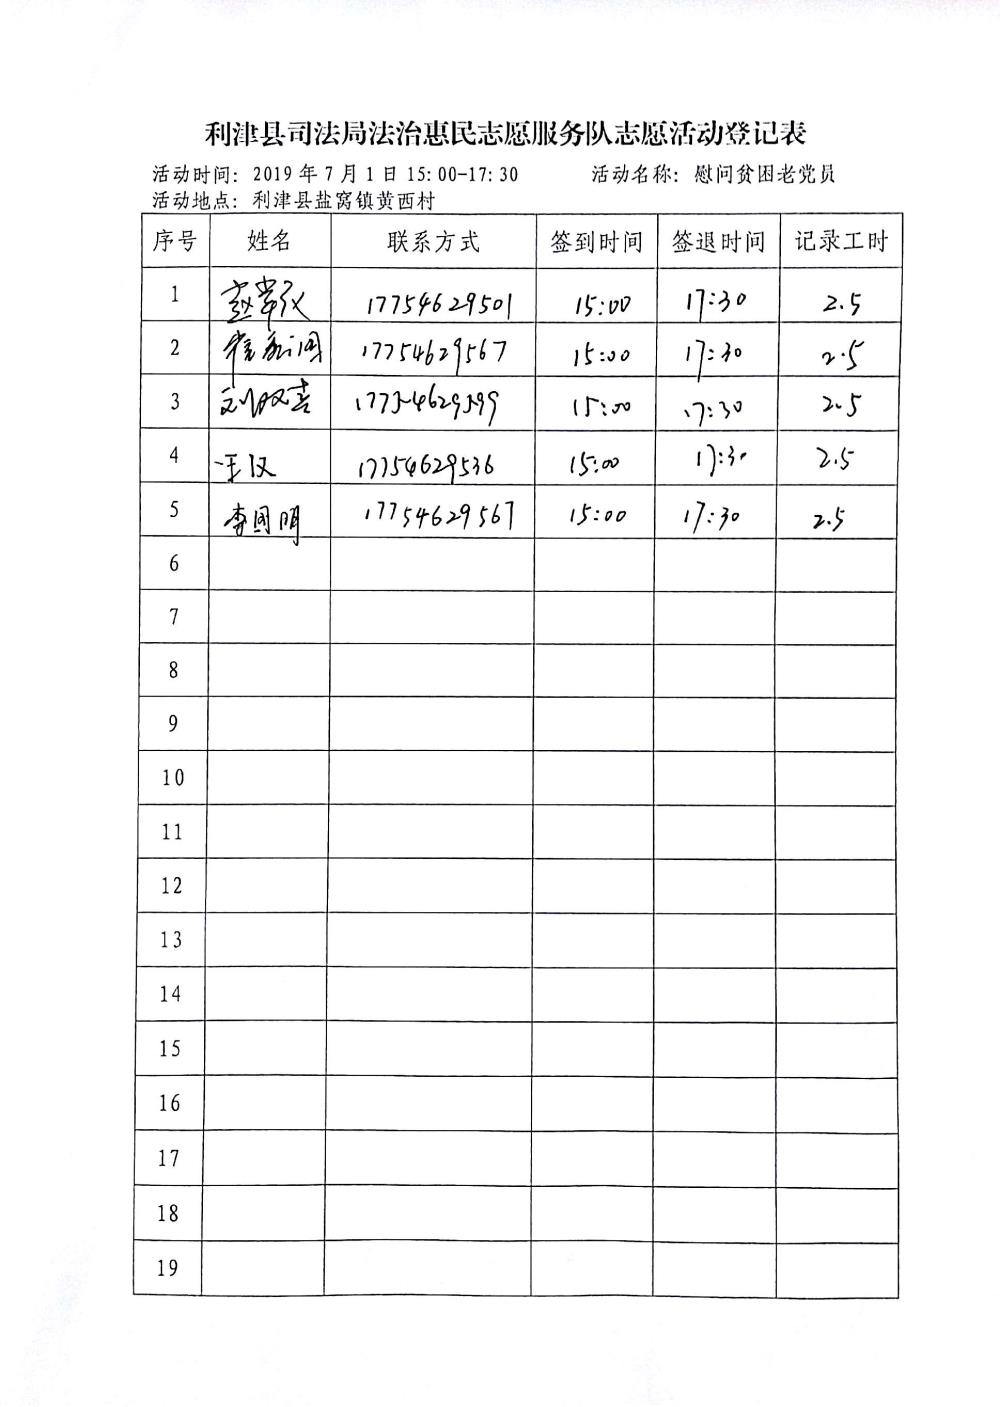 利津县司法局法治惠民志愿服务队志愿活动登记表
活动时间：2019年7月1日15:00-17:30 活动名称：慰问贫困老党员
活动地点：利津县盐窝镇黄西村
序号 姓名 联系方式 签到时间 签退时间 记录工时
1 赵 17754629501 15:00 17:30 2.5
2 17754629567 15:00 17:30 2.5
3 刘双喜 17754629599 15:00 17:30 2.5
4 王汉 17754629536 15:00 17:30 2.5
5 李国明 17754629567 15:00 17:30 2.5
6
7
8
9
10
11
12
13
14
15
16
17
18
19